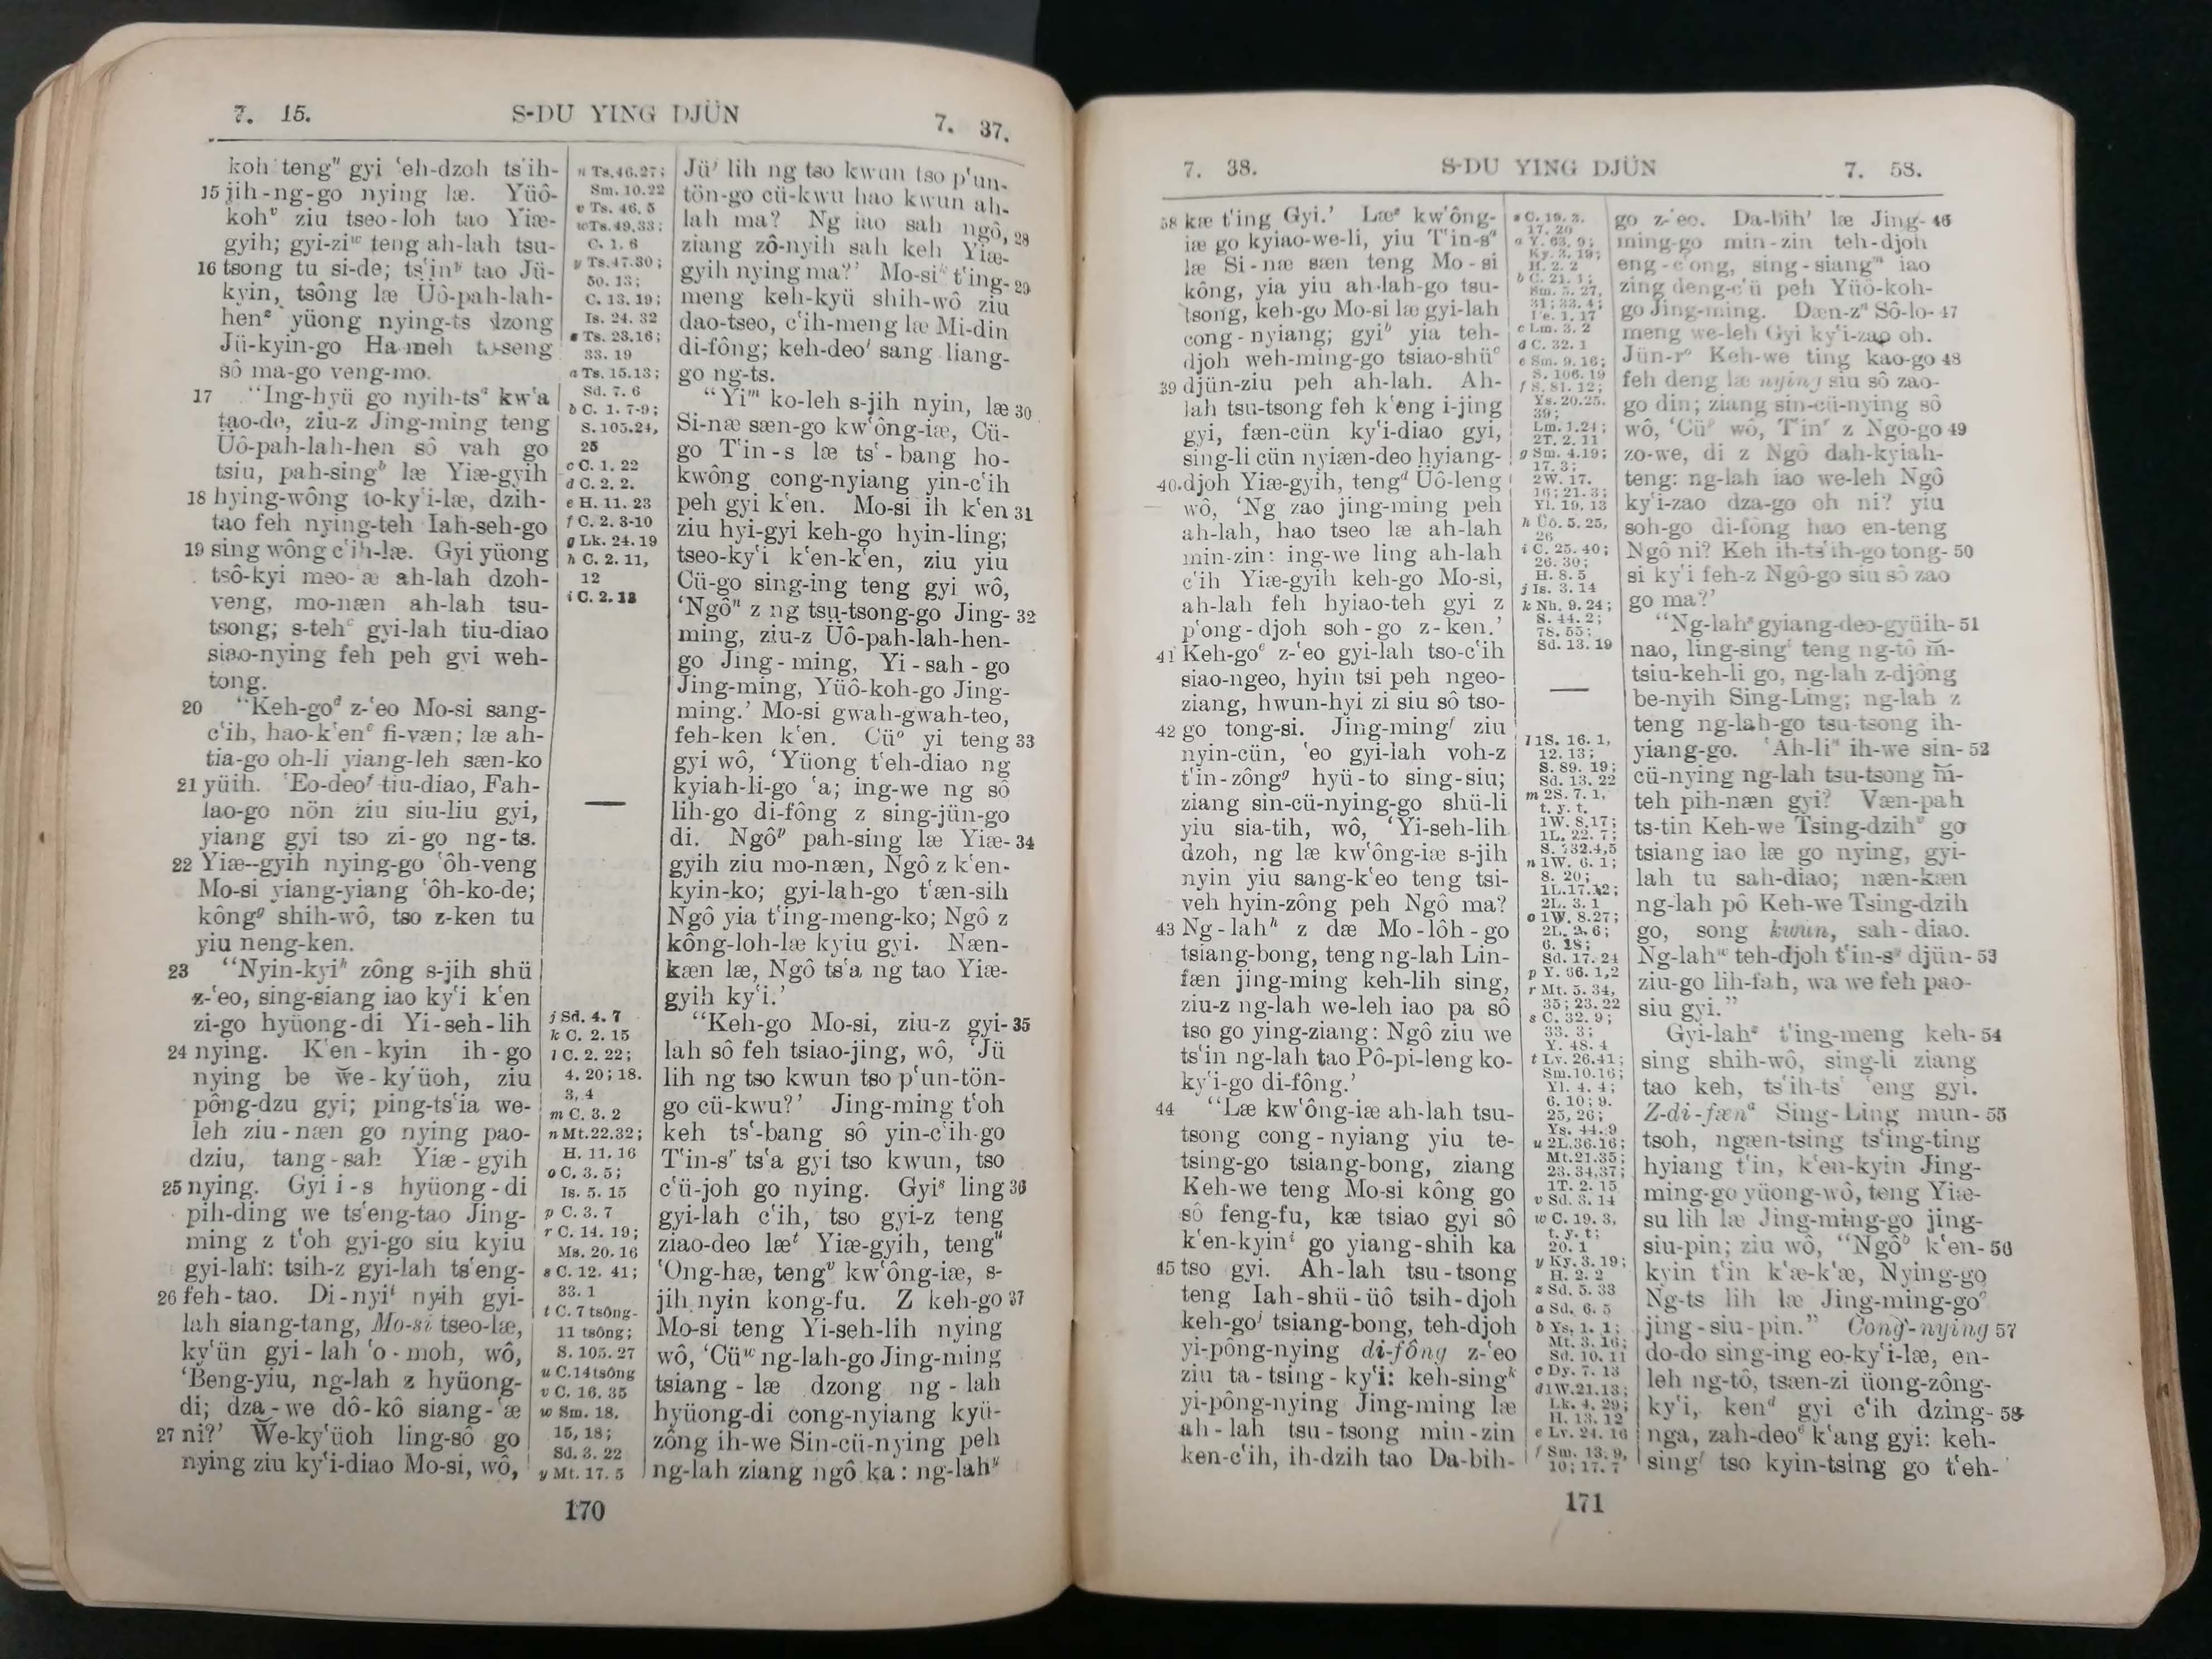 7. 15.
S-DU YING DJÜN
7. 37.
koh teng" gyi 'eh-dzoh ts'ih-
15 jih-ng-go nying læ. Yüô-
kohᵛ ziu tseo-loh tao Yiæ-
gyih; gyi-ziʷ teng ah-lah tsu-
16 tsong tu si-de; ts'inʸ tao Jü-
kyin, tsông læ Üô-pah-lah-
henᶻ yüong nying-ts dzong
Jü-kyin-go Ha-meh to-seng
sô ma-go veng-mo.
17 "Ing-hyü go nyih-tsᵃ kw'a
tao-de, ziu-z Jing-ming teng
Üô-pah-lah-hen sô vah go
tsiu, pah-singᵇ læ Yiæ-gyih
18 hying-wông to-ky'i-læ, dzih-
tao feh nying-teh Iah-seh-go
19 sing wông c'ih-læ. Gyi yüong
tsô-kyi meo-'æ ah-lah dzoh-
veng, mo-næn ah-lah tsu-
tsong; s-tehᶜ gyi-lah tiu-diao
siao-nying feh peh gyi weh-
tong.
20 "Keh-goᵈ z-'eo Mo-si sang-
c'ih, hao-k'enᵉ fi-væn; læ ah-
tia-go oh-li yiang-leh sæn-ko
21 yüih. 'Eo-deoᶠ tiu-diao, Fah-
lao-go nön ziu siu-liu gyi,
yiang gyi tso zi-go ng-ts.
22 Yiæ--gyih nying-go 'ôh-veng
Mo-si yiang-yiang 'ôh-ko-de;
kôngᵍ shih-wô, tso z-ken tu
yiu neng-ken.
23 "Nyin-kyiʰ zông s-jih shü
z-'eo, sing-siang iao ky'i k'en
zi-go hyüong-di Yi-seh-lih
24 nying. K'en-kyin ih-go
nying be w̆e-ky'üoh, ziu
pông-dzu gyi; ping-ts'ia we-
leh ziu-næn go nying pao-
dziu, tang-sah Yiæ-gyih
25 nying. Gyi i-s hyüong-di
pih-ding we ts'eng-tao Jing-
ming z t'oh gyi-go siu kyiu
gyi-lah: tsih-z gyi-lah ts'eng-
26 feh-tao. Di-nyiⁱ nyih gyi-
lah siang-tang, Mo-si tseo-læ,
ky'ün gyi-lah 'o-moh, wô,
'Beng-yiu, ng-lah z hyüong-
di; dza-we dô-kô siang-'æ
27 ni?' W̆e-ky'üoh ling-sô go
nying ziu ky'i-diao Mo-si, wô,
n Ts.46.27;
Sm. 10.22
v Ts. 46. 5
w Ts.49.33;
C. 1. 6
y Ts.47.30;
50. 13;
C. 13. 19;
Is. 24. 32
z Ts. 23.16;
33. 19
a Ts. 15.13;
Sd. 7. 6
b C. 1. 7-9;
S. 105.24,
25
c C. 1. 22
d C. 2. 2.
e H. 11. 23
f C. 2. 3-10
g Lk. 24.19
h C. 2. 11,
12
i C. 2. 13
j Sd. 4. 7
k C. 2. 15
l C. 2. 22;
4. 20; 18.
3, 4
m C. 3. 2
n Mt.22.32;
H. 11. 16
o C. 3. 5;
Is. 5. 15
p C. 3. 7
r C. 14. 19;
Ms. 20. 16
s C. 12. 41;
33. 1
t C. 7 tsông-
11 tsông;
S. 105. 27
u C.14 tsông
v C. 16. 35
w Sm. 18.
15, 18;
Sd. 3. 22
y Mt. 17. 5
Jüʲ lih ng tso kwun tso p'un-
tön-go cü-kwu hao kwun ah-
lah ma? Ng iao sah ngô, 28
ziang zô-nyih sah keh Yiæ-
gyih nying ma?' Mo-siᵏ t'ing- 29
meng keh-kyü shih-wô ziu
dao-tseo, c'ih-meng læ Mi-din
di-fông; keh-deoˡ sang liang-
go ng-ts.
"Yiᵐ ko-leh s-jih nyin, læ 30
Si-næ sæn-go kw'ông-iæ, Cü-
go T'in-s læ ts'-bang ho-
kwông cong-nyiang yin-c'ih
peh gyi k'en. Mo-si ih k'en 31
ziu hyi-gyi keh-go hyin-ling;
tseo-ky'i k'en-k'en, ziu yiu
Cü-go sing-ing teng gyi wô,
'Ngôⁿ z ng tsu-tsong-go Jing- 32
ming, ziu-z Üô-pah-lah-hen-
go Jing-ming, Yi-sah-go
Jing-ming, Yüô-koh-go Jing-
ming.' Mo-si gwah-gwah-teo,
feh-ken k'en. Cüᵒ yi teng 33
gyi wô, 'Yüong t'eh-diao ng
kyiah-li-go 'a; ing-we ng sô
lih-go di-fông z sing-jün-go
di. Ngôᵖ pah-sing læ Yiæ- 34
gyih ziu mo-næn, Ngô z k'en-
kyin-ko; gyi-lah-go t'æn-sih
Ngô yia t'ing-meng-ko; Ngô z
kông-loh-læ kyiu gyi. Næn-
kæn læ, Ngô ts'a ng tao Yiæ-
gyih ky'i.'
"Keh-go Mo-si, ziu-z gyi- 35
lah sô feh tsiao-jing, wô, 'Jü
lih ng tso kwun tso p'un-tön-
go cü-kwu?' Jing-ming t'oh
keh ts'-bang sô yin-c'ih-go
T'in-sʳ ts'a gyi tso kwun, tso
c'ü-joh go nying. Gyiˢ ling 36
gyi-lah c'ih, tso gyi-z teng
ziao-deo læᵗ Yiæ-gyih, tengᵘ
'Ong-hæ, tengᵛ kw'ông-iæ, s-
jih nyin kong-fu. Z keh-go 37
Mo-si teng Yi-seh-lih nying
wô, 'Cüʷ ng-lah-go Jing-ming
tsiang-læ dzong ng-lah
hyüong-di cong-nyiang kyü-
zông ih-we Sin-cü-nying peh
ng-lah ziang ngô ka: ng-lahʸ
170
7. 38.
S-DU YING DJÜN
7. 58.
38 kæ t'ing Gyi.' Læᶻ kw'ông-
iæ go kyiao-we-li, yiu T'in-sᵃ
læ Si-næ sæn teng Mo-si
kông, yia yiu ah-lah-go tsu-
tsong, keh-go Mo-si læ gyi-lah
cong-nyiang; gyiᵇ yia teh-
djoh weh-ming-go tsiao-shüᶜ
39 djün-ziu peh ah-lah. Ah-
lah tsu-tsong feh k'eng i-jing
gyi, fæn-cün ky'i-diao gyi,
sing-li cün nyiæn-deo hyiang-
40 djoh Yiæ-gyih, tengᵈ Üô-leng
wô, 'Ng zao jing-ming peh
ah-lah, hao tseo læ ah-lah
min-zin: ing-we ling ah-lah
c'ih Yiæ-gyih keh-go Mo-si,
ah-lah feh hyiao-teh gyi z
p'ong-djoh soh-go z-ken.'
41 Keh-goᵉ z-'eo gyi-lah tso-c'ih
siao-ngeo, hyin tsi peh ngeo-
ziang, hwun-hyi zi siu sô tso-
42 go tong-si. Jing-mingᶠ ziu
nyin-cün, 'eo gyi-lah voh-z
t'in-zôngᵍ hyü-to sing-siu;
ziang sin-cü-nying-go shü-li
yiu sia-tih, wô, 'Yi-seh-lih
dzoh, ng læ kw'ông-iæ s-jih
nyin yiu sang-k'eo teng tsi-
veh hyin-zông peh Ngô ma?
43 Ng-lahʰ z dæ Mo-lôh-go
tsiang-bong, teng ng-lah Lin-
fæn jing-ming keh-lih sing,
ziu-z ng-lah we-leh iao pa sô
tso go ying-ziang: Ngô ziu we
ts'in ng-lah tao Pô-pi-leng ko-
ky'i-go di-fông.'
44 "Læ kw'ông-iæ ah-lah tsu-
tsong cong-nyiang yiu te-
tsing-go tsiang-bong, ziang
Keh-we teng Mo-si kông go
sô feng-fu, kæ tsiao gyi sô
k'en-kyinⁱ go yiang-shih ka
45 tso gyi. Ah-lah tsu-tsong
teng Iah-shü-üô tsih-djoh
keh-goʲ tsiang-bong, teh-djoh
yi-pông-nying di-fông z-'eo
ziu ta-tsing-ky'i: keh-singᵏ
yi-pông-nying Jing-ming læ
ah-lah tsu-tsong min-zin
ken-c'ih, ih-dzih tao Da-bih-
z C. 19. 3.
17. 20
a Y. 63. 9;
Ky. 3. 19;
H. 2. 2
b C. 21. 1;
Sm. 5. 27,
31; 33. 4;
Ie. 1. 17
c Lm. 3. 2
d C. 32. 1
e Sm. 9. 16;
S. 106. 19
f S. 81. 12;
Ys. 20.25.
39;
Lm. 1.24;
2T. 2. 11
g Sm. 4.19;
17. 3;
2W. 17.
16; 21. 3;
Yl. 19. 13
h Üô. 5. 25,
26
i C. 25. 40;
26. 30;
H. 8. 5
j Is. 3. 14
k Nh. 9. 24;
S. 44. 2;
78. 55;
Sd. 13. 19
l 1S. 16. 1,
12. 13;
S. 89. 19;
Sd. 13. 22
m 2S. 7. 1,
t. y. t.
1W. 8.17;
1L. 22. 7;
S. 132.4,5
n 1W. 6. 1;
8. 20;
1L.17.12;
2L. 3. 1
o 1W. 8.27;
2L. 2. 6;
6. 18;
Sd. 17. 24
p Y. 66. 1,2
r Mt. 5. 34,
35; 23. 22
s C. 32. 9;
33. 3;
Y. 48. 4
t Lv. 26.41;
Sm.10.16;
Yl. 4. 4;
6. 10; 9.
25, 26;
Ys. 44. 9
u 2L.36.16;
Mt.21.35;
23. 34,37;
1T. 2. 15
v Sd. 3. 14
w C. 19. 3,
t. y. t;
20. 1
y Ky. 3. 19;
H. 2. 2
z Sd. 5. 33
a Sd. 6. 5
b Ys. 1. 1;
Mt. 3. 16;
Sd. 10. 11
c Dy. 7. 13
d 1W.21.13;
Lk. 4. 29;
H. 13. 12
e Lv. 24. 16
f Sm. 13. 9,
10; 17. 7
go z-'eo. Da-bihˡ læ Jing- 46
ming-go min-zin teh-djoh
eng-c'ong, sing-siangᵐ iao
zing deng-c'ü peh Yüô-koh-
go Jing-ming. Dæn-zⁿ Sô-lo- 47
meng we-leh Gyi ky'i-zao oh.
Jün-rᵒ Keh-we ting kao-go 48
feh deng læ nying siu sô zao-
go din; ziang sin-cü-nying sô
wô, 'Cüᵖ wô, T'inʳ z Ngô-go 49
zo-we, di z Ngô dah-kyiah-
teng: ng-lah iao we-leh Ngô
ky'i-zao dza-go oh ni? yiu
soh-go di-fông hao en-teng
Ngô ni? Keh ih-ts'ih-go tong- 50
si ky'i feh-z Ngô-go siu sô zao
go ma?'
"Ng-lahˢ gyiang-deo-gyüih- 51
nao, ling-singᵗ teng ng-tô m̄-
tsiu-keh-li go, ng-lah z-djông
be-nyih Sing-Ling; ng-lah z
teng ng-lah-go tsu-tsong ih-
yiang-go. 'Ah-liᵘ ih-we sin- 52
cü-nying ng-lah tsu-tsong m̄-
teh pih-næn gyi? Væn-pah
ts-tin Keh-we Tsing-dzihᵛ go
tsiang iao læ go nying, gyi-
lah tu sah-diao; næn-kæn
ng-lah pô Keh-we Tsing-dzih
go, song kwun, sah-diao.
Ng-lahʷ teh-djoh t'in-sʸ djün- 53
ziu-go lih-fah, wa we feh pao-
siu gyi."
Gyi-lahᶻ t'ing-meng keh- 54
sing shih-wô, sing-li ziang
tao keh, ts'ih-ts' 'eng gyi.
Z-di-fænᵃ Sing-Ling mun- 55
tsoh, ngæn-tsing ts'ing-ting
hyiang t'in, k'en-kyin Jing-
ming-go yüong-wô, teng Yiæ-
su lih læ Jing-ming-go jing-
siu-pin; ziu wô, "Ngôᵇ k'en- 56
kyin t'in k'æ-k'æ, Nying-go
Ng-ts lih læ Jing-ming-goᶜ
jing-siu-pin." Cong-nying 57
do-do sing-ing eo-ky'i-læ, en-
leh ng-tô, tsæn-zi üong-zông-
ky'i, kenᵈ gyi c'ih dzing- 58
nga, zah-deoᵉ k'ang gyi: keh-
singᶠ tso kyin-tsing go t'eh-
171